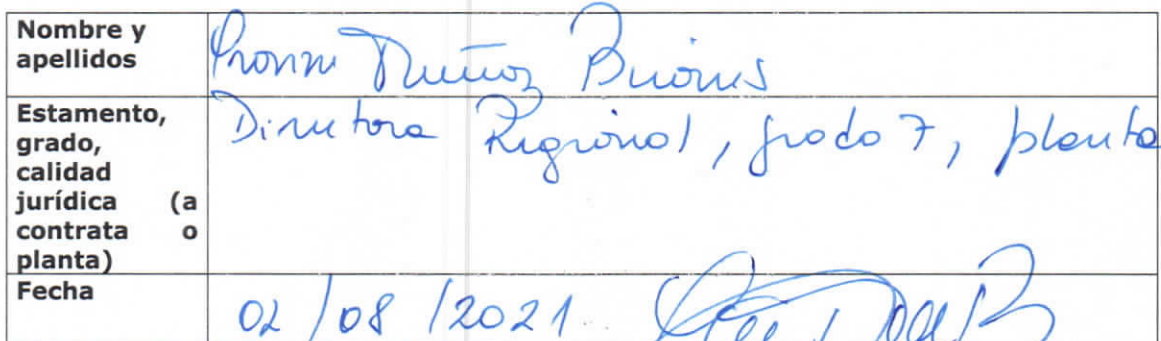 Nombre y apellidos
Muñoz
Estamento, grado, calidad jurídica (a contrata o planta)
Directora Regional, grado 7, planta
Fecha
02/08/2021